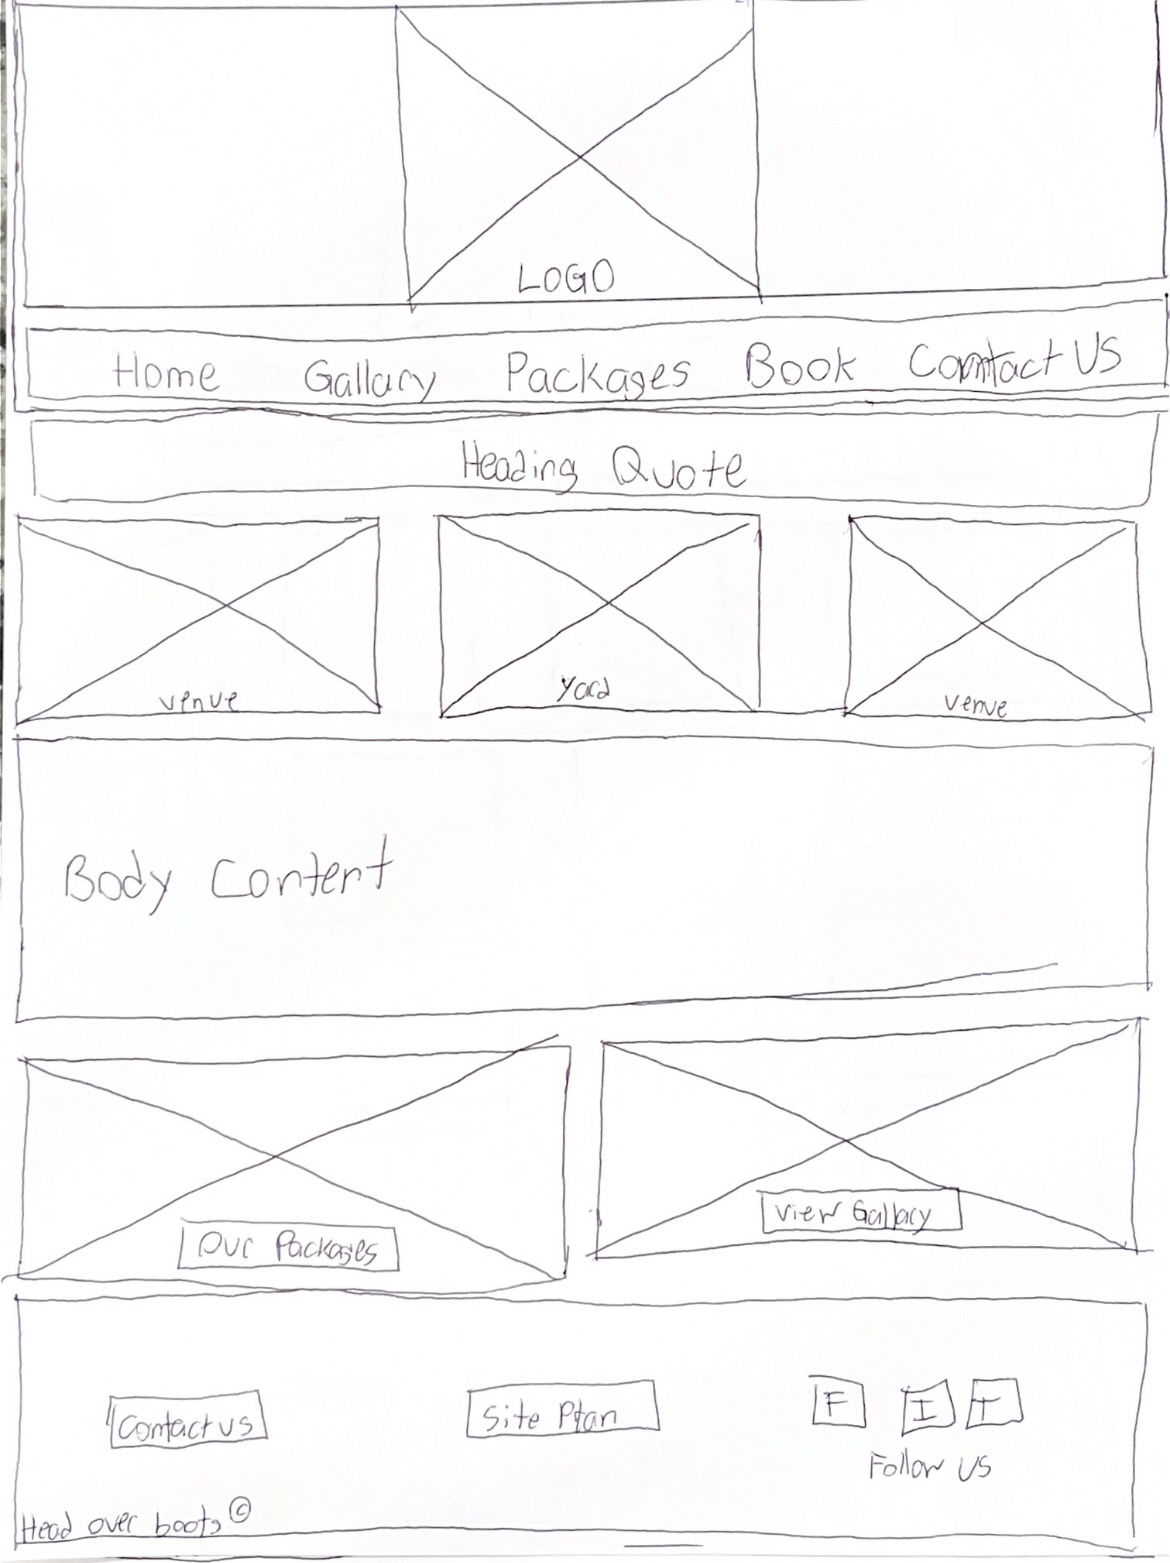 LOGO
Home Gallary Packages Book Contact US
Heading Quote
venue yard venue
Body Content
Our Packages View Gallary
Contact us Site Plan F I T
Follow US
Head over boots ©